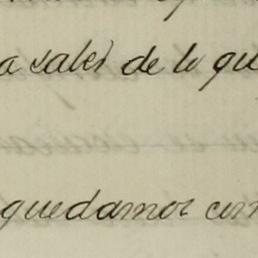 a saber de lo qu
quedamos com